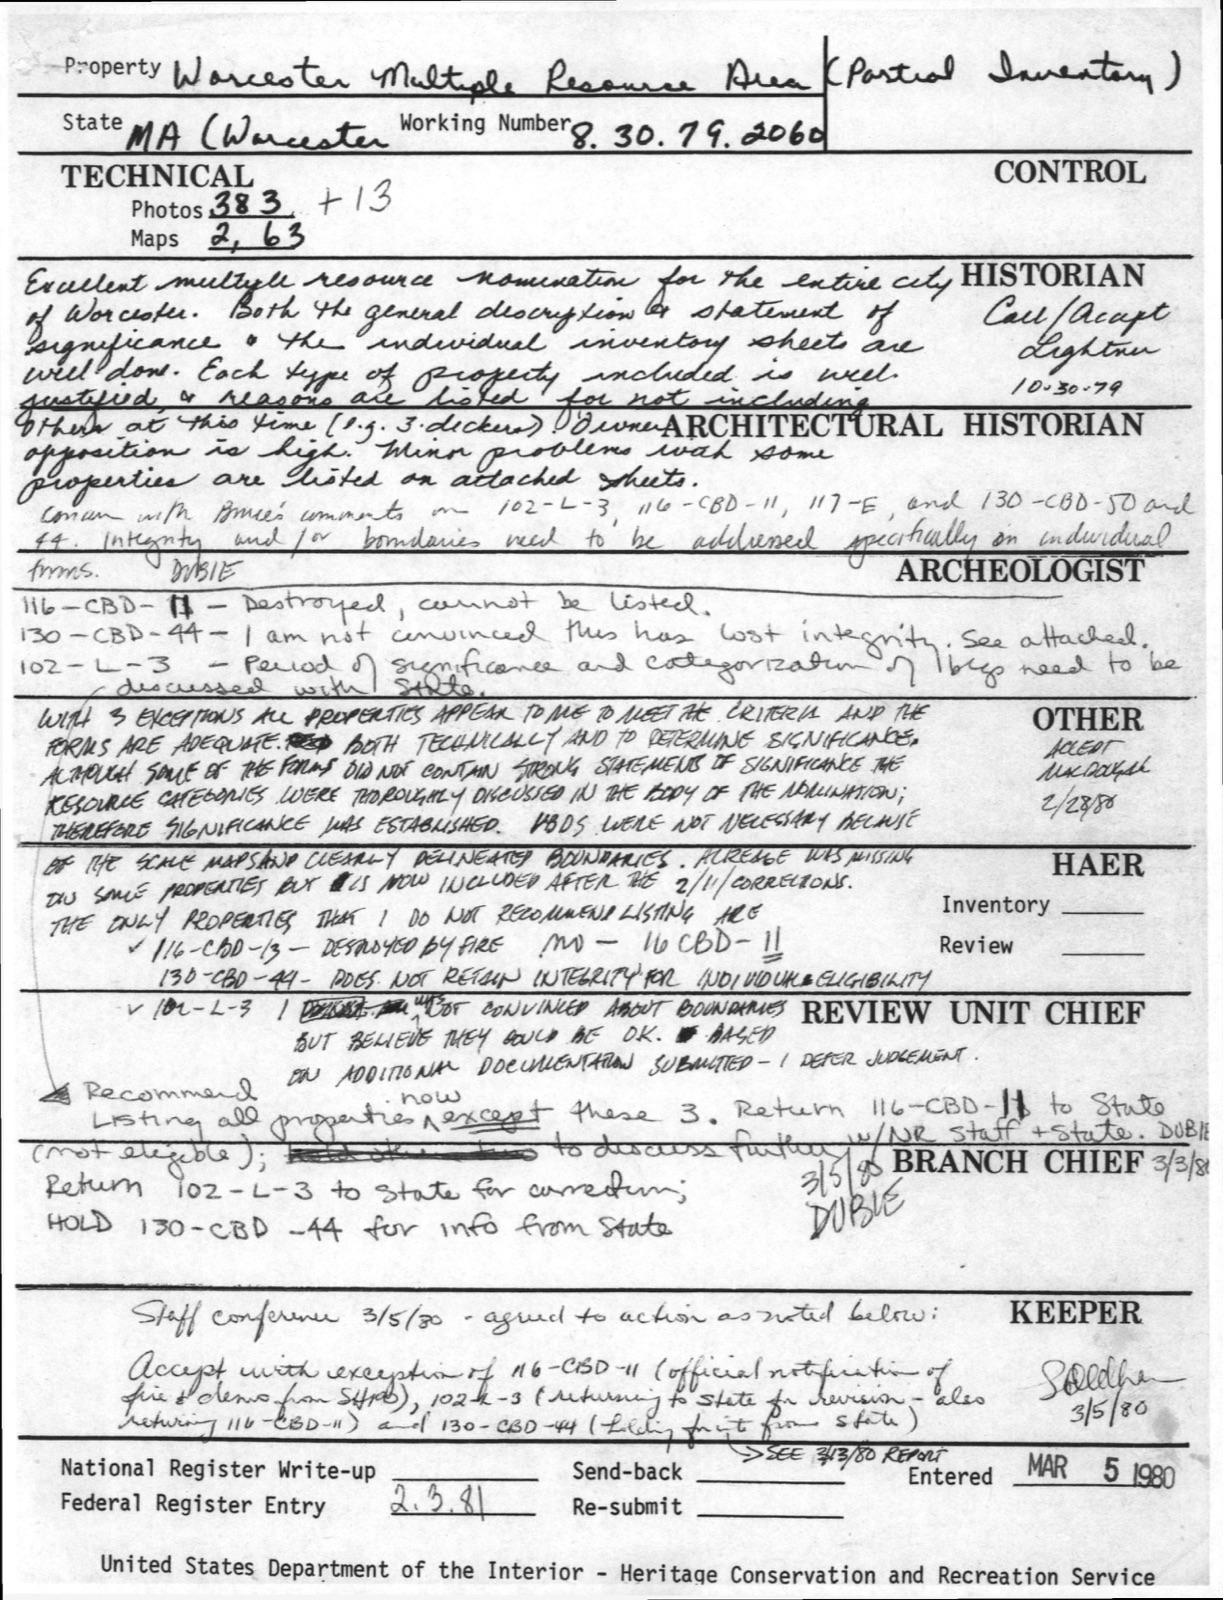 Property Worcester Multiple Resource Area (Partial Inventory)
State MA (Worcester Working Number 8.30.79.2060
TECHNICAL CONTROL
Photos 383 + 13
Maps 2, 63
HISTORIAN
Excellent multiple resource nomination for the entire city
of Worcester. Both the general description & statement of
significance & the individual inventory sheets are
well done. Each type of property included is well
justified & reasons are listed for not including
Call/Accept
Lightner
10.30.79
ARCHITECTURAL HISTORIAN
others at this time (e.g. 3-deckers). Owner
opposition is high. Minor problems with some
properties are listed on attached sheets.
concur with Bruce's comments on 102-L-3, 116-CBD-11, 117-E, and 130-CBD-50 and
44. Integrity and/or boundaries need to be addressed specifically on individual
forms. DUBIE
ARCHEOLOGIST
116-CBD-11 - Destroyed, cannot be listed.
130-CBD-44 - I am not convinced this has lost integrity. See attached.
102-L-3 - Period of significance and categorization of bldgs need to be
discussed with State.
OTHER
WITH 3 EXCEPTIONS ALL PROPERTIES APPEAR TO ME TO MEET THE CRITERIA AND THE
FORMS ARE ADEQUATE BOTH TECHNICALLY AND TO DETERMINE SIGNIFICANCE.
ALTHOUGH SOME OF THE FORMS DID NOT CONTAIN STRONG STATEMENTS OF SIGNIFICANCE THE
RESOURCE CATEGORIES WERE THOROUGHLY DISCUSSED IN THE BODY OF THE NOMINATION;
THEREFORE SIGNIFICANCE WAS ESTABLISHED. VBDS WERE NOT NECESSARY BECAUSE
ACCEPT
MACDOUGAL
2/28/80
HAER
OF THE SCALE MAPS AND CLEARLY DELINEATED BOUNDARIES. ACREAGE WAS MISSING
ON SOME PROPERTIES BUT IS NOW INCLUDED AFTER THE 2/11/CORRECTIONS.
THE ONLY PROPERTIES THAT I DO NOT RECOMMEND LISTING ARE
Inventory
✓ 116-CBD-13 - DESTROYED BY FIRE NO - 116 CBD-11
Review
130-CBD-44 - DOES NOT RETAIN INTEGRITY FOR INDIVIDUAL ELIGIBILITY
REVIEW UNIT CHIEF
✓ 102-L-3 I WAS NOT CONVINCED ABOUT BOUNDARIES
BUT BELIEVE THEY COULD BE OK. BASED
ON ADDITIONAL DOCUMENTATION SUBMITTED - I DEFER JUDGEMENT.
Recommend
Listing all properties now except these 3. Return 116-CBD-11 to State
(not eligible); to discuss further w/NR Staff + State. DUBIE
3/3/80
BRANCH CHIEF
Return 102-L-3 to State for correction;
HOLD 130-CBD-44 for info from State
3/5/80
DUBIE
KEEPER
Staff conference 3/5/80 - agreed to action as noted below:
Accept with exception of 116-CBD-11 (official notification of
fire & demo from SHPO), 102-L-3 (returning to state for revision - also
returning 116-CBD-11) and 130-CBD-44 (holding for info from State)
3/5/80
SEE 3/13/80 REPORT
National Register Write-up Send-back Entered MAR 5 1980
Federal Register Entry 2.3.81 Re-submit
United States Department of the Interior - Heritage Conservation and Recreation Service